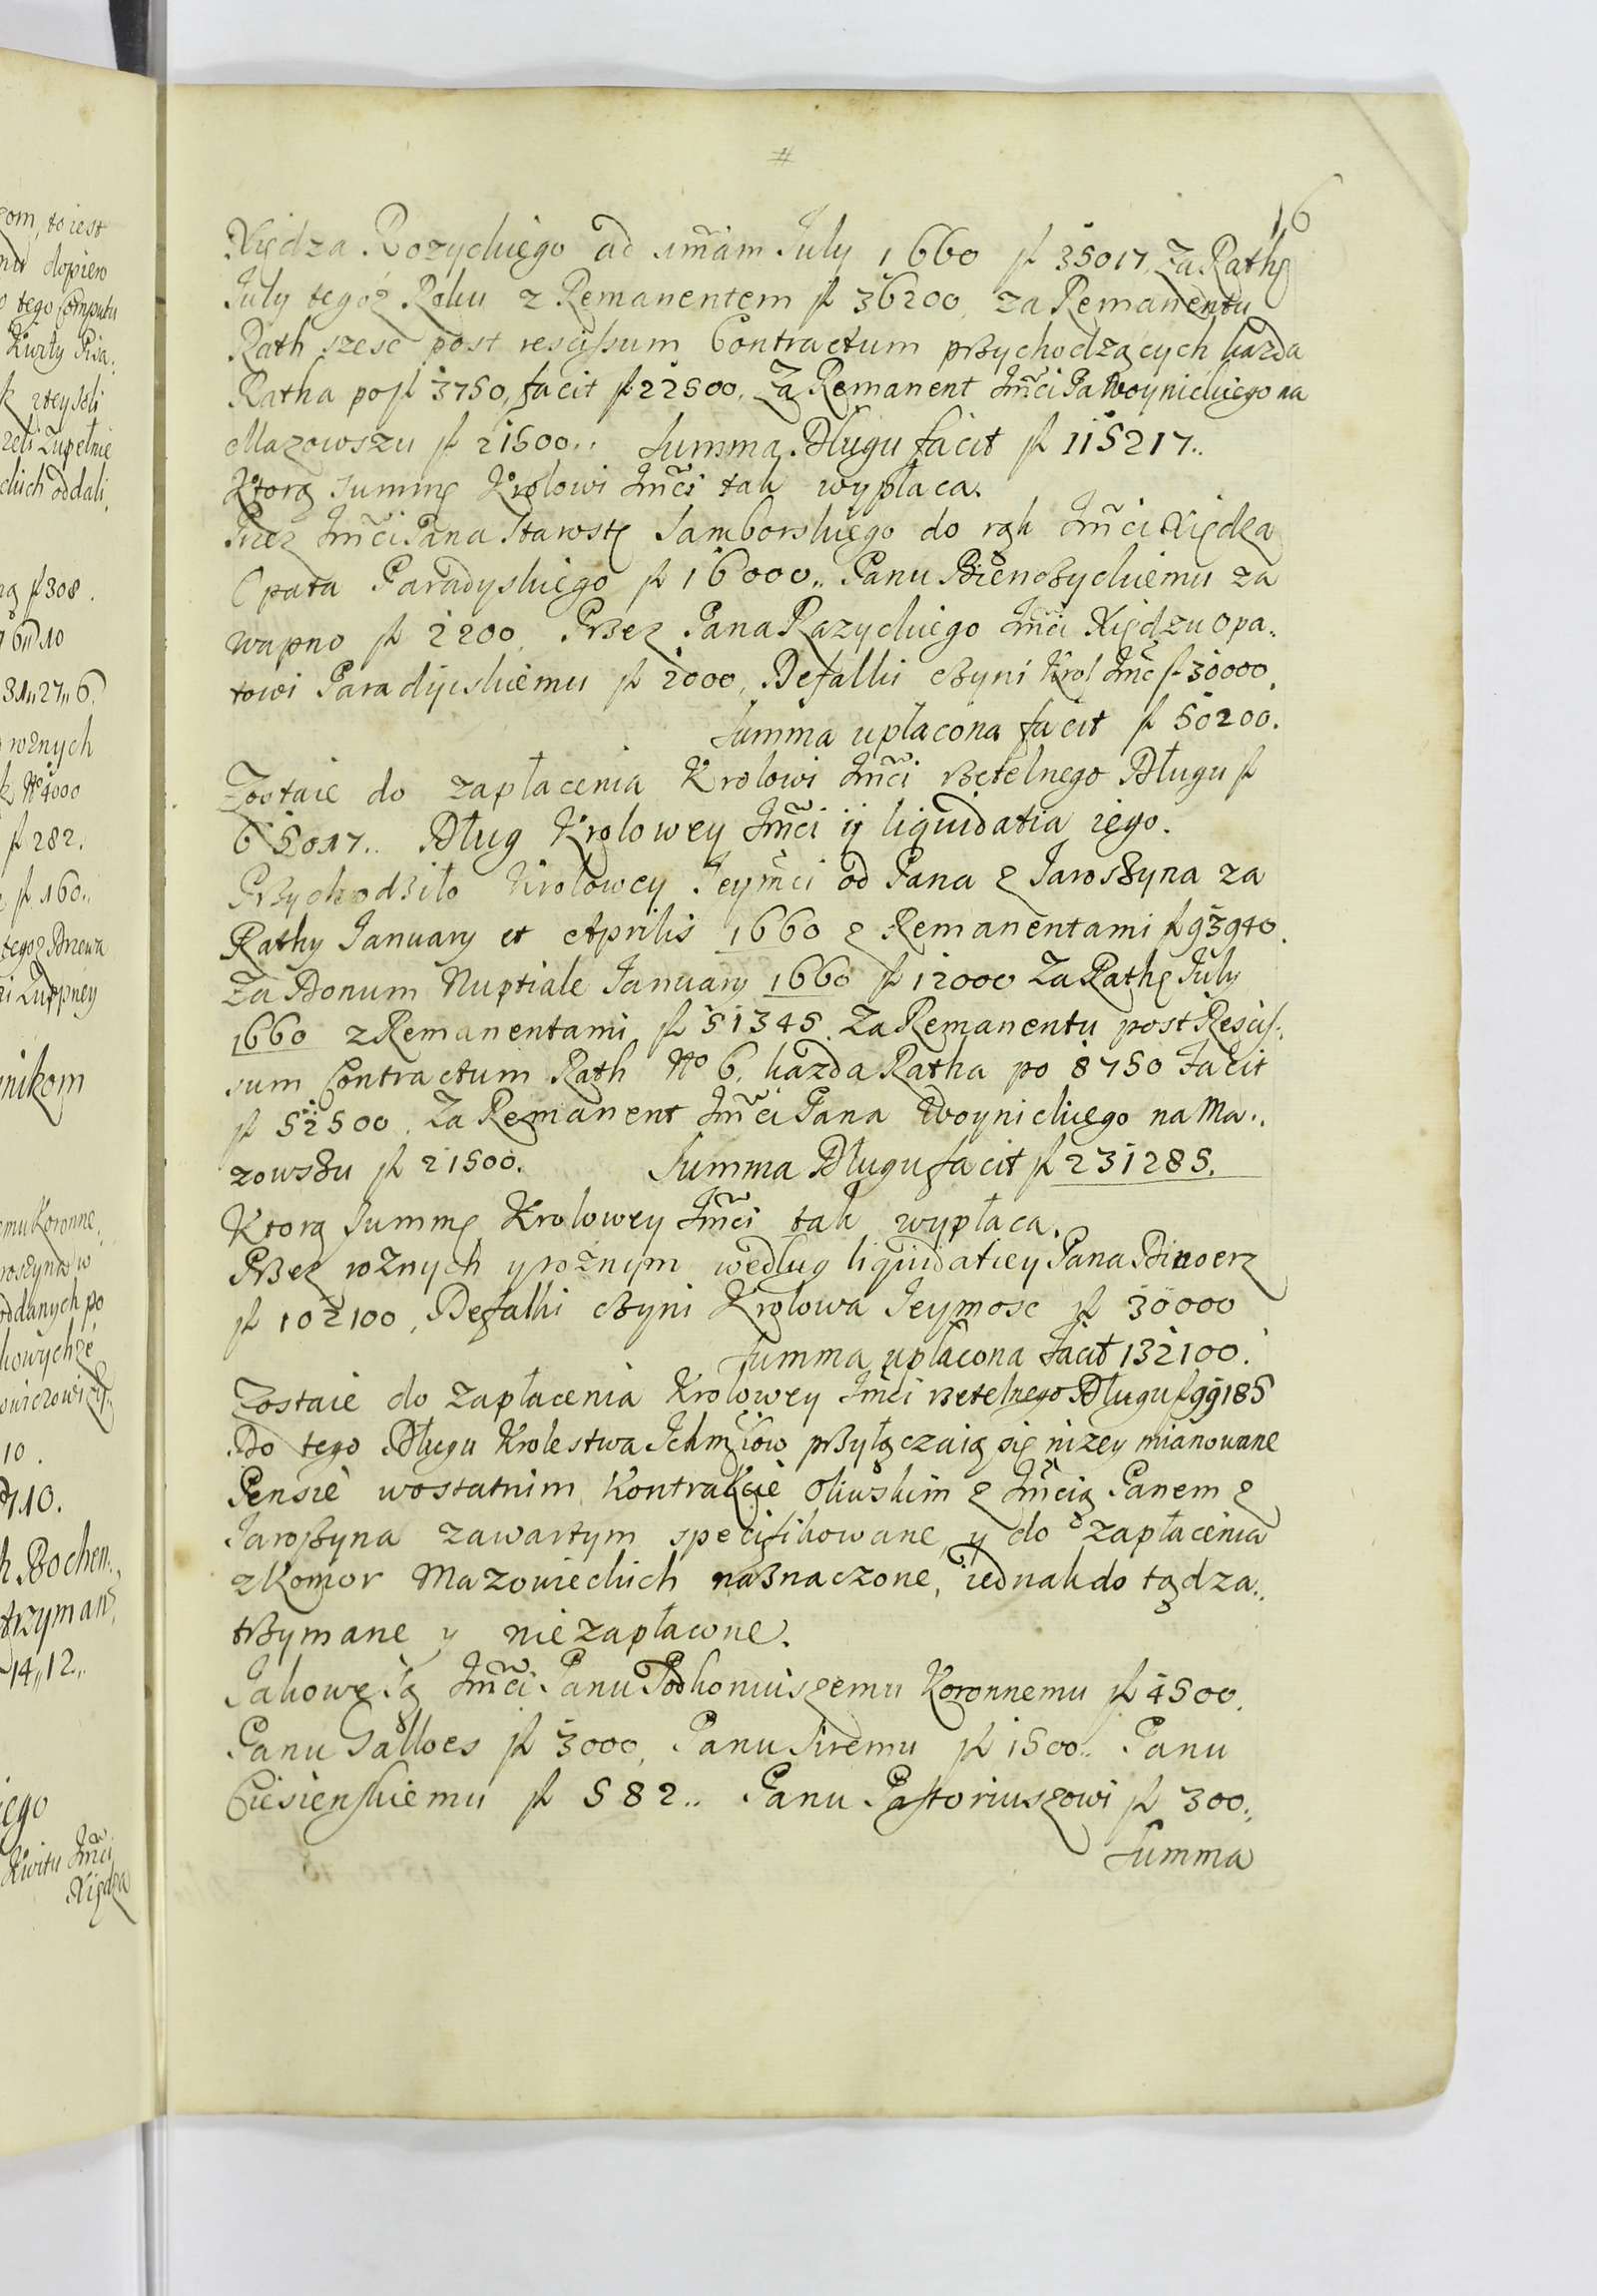 16
Xiędza Rozyckiego ad 1mam July 1660 fl 35017, Za Rathę
July tegoz Roku z Remanentem fl 36200, za Remanentu
Rath szesc post rescissum Contractum przychodzących, kazda
Ratha po fl 3750, facit fl 22500. Za Remanent Jmci Pa Woynickiego na
Mazowszu fl 21500.. Summa Długu facit fl 115217..
Ktorą summę Krolowi Jmci tak wypłaca.
Przez Jmci Pana Starostę Samborskiego do rąk Jmci Xiędza
Opata Paradyskiego fl 16000.. Panu Bienczyckiemu za
wapno fl 2200, Przez Pana Razyckiego Jmci Xiędzu Opa..
towi Paradyiskiemu fl 2000, Defalki czyni Krol Jmc fl 30000.
Summa upłacona facit fl 50200.
Zostaie do zapłacenia Krolowi Jmci rzetelnego Długu fl
65017.. Dług Krolowey Jmci ij liquidatia iego.
Przychodziło Krolowey Jeymci od Pana z Jaroszyna za
Rathy January et Aprilis 1660 z Remanentami fl 93940.
Za Donum Nuptiale January 1660 fl 12000 Za Rathę July
1660 z Remanentami fl 51345. Za Remanentu post Resciss..
sum Contractum Rath No 6, kazda Ratha po 8750 facit
fl 52500. Za Remanent Jmci Pana Woynickiego na Ma..
zowszu fl 21500. Summa Długu facit fl 231285.
Ktorą Summę Krolowey Jmci tak wypłaca.
Przez roznych y roznym według liquidatiey Pana Binoerz
fl 102100, Defalki czyni Krolowa Jeymosc fl 30000
Summa upłacona facit 132100.
Zostaie do Zapłacenia Krolowey Jmci rzetelnego Długu fl 99185
Do tego Długu Krolestwa Ichmciow przyłączaią się nizey mianowane
Pensie wostatnim Kontrakcie Oliwskim z Jmcią Panem z
Jaroszyna zawartym specifikowane, y do zapłacenia
z Komor Mazowieckich naznaczone, iednak do tąd za..
trzymane y niezapłacone.
Jakowe są Jmci Panu Podkoniuszemu Koronnemu fl 4500.
Panu Galloes fl 3000, Panu Siremu fl 1500.. Panu
Ciesienskiemu fl 582.. Panu Pastoriuszowi fl 300..
Summa